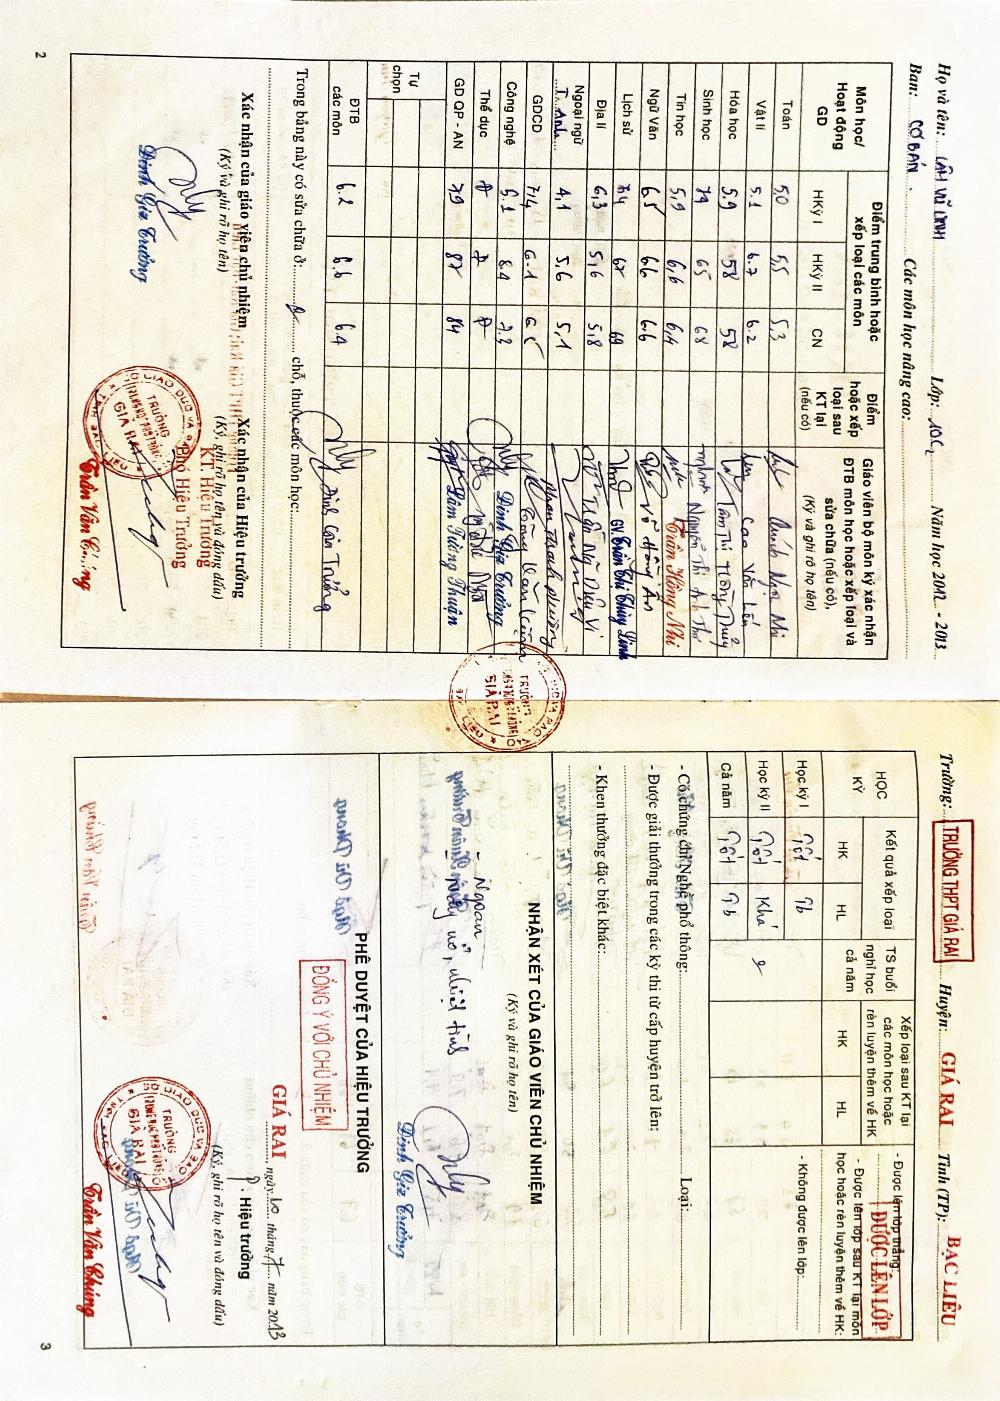 Họ và tên: LÂM VŨ LINH Lớp: 10C Năm học 2012 - 2013
Ban: CƠ BẢN Các môn học nâng cao:
Môn học/ Hoạt động GD
Điểm trung bình hoặc xếp loại các môn
HKỳ I HKỳ II CN
Điểm hoặc xếp loại sau KT lại (nếu có)
Giáo viên bộ môn ký xác nhận ĐTB môn học hoặc xếp loại và sửa chữa (nếu có),
(Ký và ghi rõ họ tên)
Toán 5,0 5,5 5,3
Vật lí 5.1 6.7 6.2 Cao Văn
Hóa học 5.9 58 58 Thị Hồng Thủy
Sinh học 74 65 68 Nguyễn Thị Anh Thư
Tin học 5,9 6,6 6,4 Trần Hồng Nhi
Ngữ Văn 6.5 6.6 6.6 Võ Hồng Ân
Lịch sử 7,4 67 69 GV Trần Thị Thùy Linh
Địa lí 6,3 5,6 5,8 Diệu Vi
Ngoại ngữ T. Anh 4,1 5,6 5,1
GDCD 7,4 6.1 6.5 Phan Thanh Phương
Công nghệ 5.1 8.4 7.3 Văn
Thể dục Đ Đ Đ Đinh Gia Trưởng
GD QP - AN 79 87 84 Lâm Tường Thuận
Tự chọn
ĐTB các môn 6.2 6.6 6.4
Trong bảng này có sửa chữa ở: chỗ, thuộc các môn học:
Đinh Gia Trưởng
Xác nhận của giáo viên chủ nhiệm
(Ký và ghi rõ họ tên)
Đinh Gia Trưởng
Xác nhận của Hiệu trưởng
(Ký, ghi rõ họ tên và đóng dấu)
KT. Hiệu Trưởng
Phó Hiệu Trưởng
TRƯỜNG
GIÁ RAI
Trần Văn Chúng
2
TRƯỜNG
GIÁ RAI
Trường: TRƯỜNG THPT GIÁ RAI Huyện: GIÁ RAI Tỉnh (TP): BẠC LIÊU
HỌC KỲ
Kết quả xếp loại
HK HL
TS buổi nghỉ học cả năm
Xếp loại sau KT lại các môn học hoặc rèn luyện thêm về HK
HK HL
- Được lên lớp thẳng:
ĐƯỢC LÊN LỚP
- Được lên lớp sau KT lại môn học hoặc rèn luyện thêm về HK:
- Không được lên lớp:
Học kỳ I Tốt Tb
Học kỳ II Tốt Khá
Cả năm Tốt Tb
2
- Có chứng chỉ Nghề phổ thông: Loại:
- Được giải thưởng trong các kỳ thi từ cấp huyện trở lên:
- Khen thưởng đặc biệt khác:
NHẬN XÉT CỦA GIÁO VIÊN CHỦ NHIỆM
(Ký và ghi rõ họ tên)
- Ngoan
nổ, nhiệt tình
Đinh Gia Trưởng
PHÊ DUYỆT CỦA HIỆU TRƯỞNG
ĐỒNG Ý VỚI CHỦ NHIỆM
GIÁ RAI, ngày 10 tháng 7 năm 2013
P. Hiệu trưởng
(Ký, ghi rõ họ tên và đóng dấu)
SỞ GIÁO DỤC VÀ ĐÀO
TRƯỜNG
GIÁ RAI
Trần Văn Chúng
3